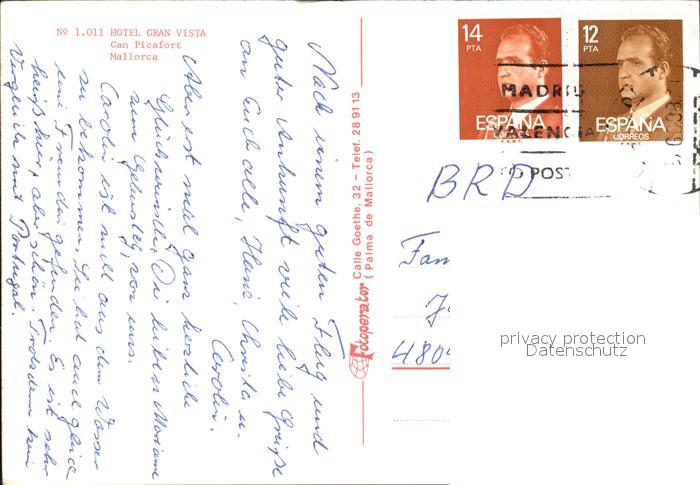 Nº 1.011 HOTEL GRAN VISTA
Can Picafort
Mallorca
Nach einem guten Flug und
guter Ankunft viele liebe Grüße
an Euch alle, Hansi, Christa u.
Carolin.
Aber erst mal ganz herzliche
Glückwünsche, Dir liebe Mariane
zum Geburtstag, von uns.
Carolin ist nicht aus dem Wasser
zu bekommen. Sie hat auch gleich
eine Freundin gefunden. Es ist sehr
heiß hier, aber schön. Trotzdem kein
Vergleich mit Portugal.
Fotoperator Calle Goethe, 32 - Telef. 28 91 13
(Palma de Mallorca)
14
PTA
ESPAÑA
CORREOS
12
PTA
ESPAÑA
CORREOS
MADRID
VALENCIA
POST
BRD
Fam
480
privacy protection
Datenschutz